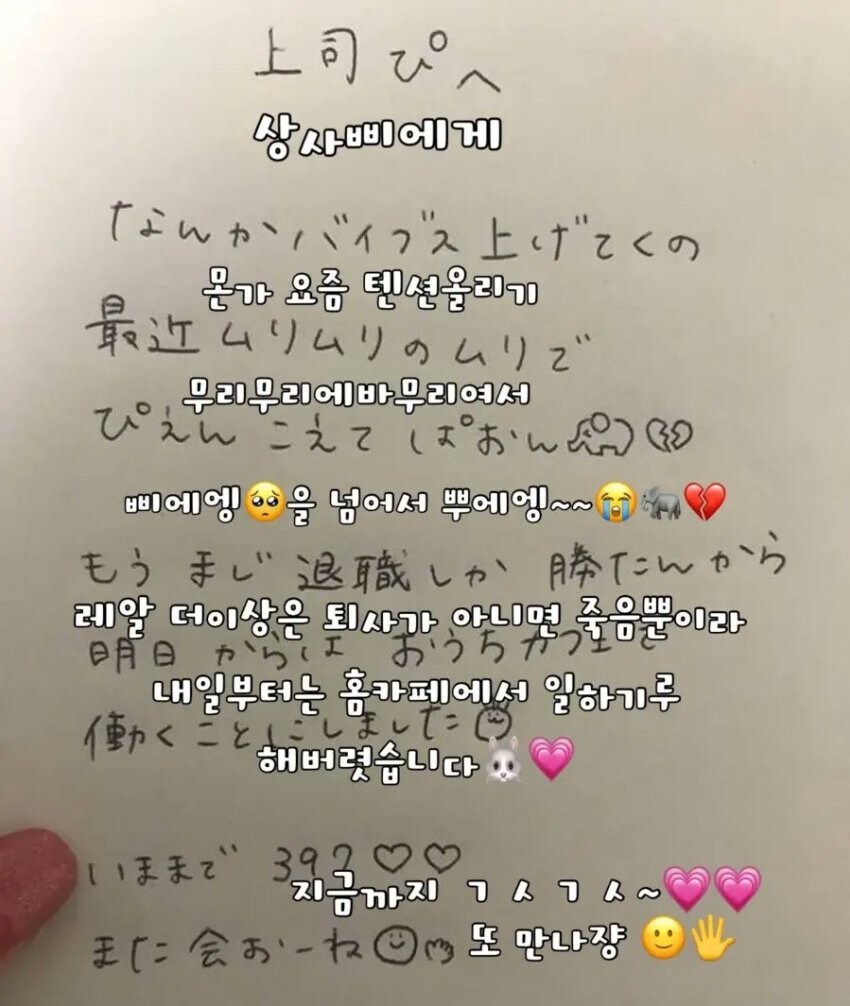 上司ぴへ
상사삐에게
なんかバイブス上げてくの
몬가 요즘 텐션올리기
最近ムリムリのムリで
무리무리에바무리여서
ぴえんこえてぱおん🐘💔
삐에엥🥺을 넘어서 뿌에엥~~😭🐘💔
もうまじ退職しか勝たんから
레알 더이상은 퇴사가 아니면 죽음뿐이라
明日からは おうちカフェで
내일부터는 홈카페에서 일하기루
働くことにしました
해버렸습니다🐰💗
いままで 397♡♡
지금까지 ㄱㅅㄱㅅ~💗💗
また会おーね
또 만나쟝 🙂🖐